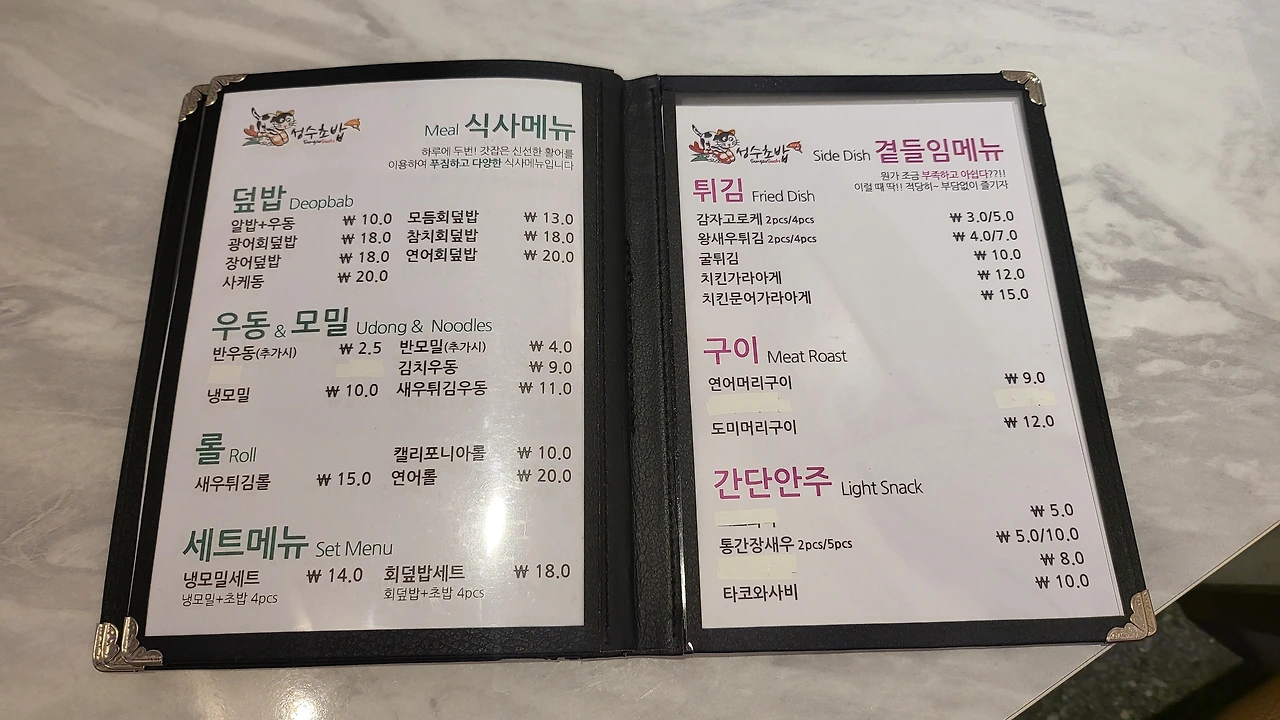 성수초밥
Meal 식사메뉴
하루에 두번! 갓잡은 신선한 활어를
이용하여 푸짐하고 다양한 식사메뉴입니다
덮밥 Deopbab
알밥+우동 ₩ 10.0 모듬회덮밥 ₩ 13.0
광어회덮밥 ₩ 18.0 참치회덮밥 ₩ 18.0
장어덮밥 ₩ 18.0 연어회덮밥 ₩ 20.0
사케동 ₩ 20.0
우동 & 모밀 Udong & Noodles
반우동(추가시) ₩ 2.5 반모밀(추가시) ₩ 4.0
김치우동 ₩ 9.0
냉모밀 ₩ 10.0 새우튀김우동 ₩ 11.0
롤 Roll
캘리포니아롤 ₩ 10.0
새우튀김롤 ₩ 15.0 연어롤 ₩ 20.0
세트메뉴 Set Menu
냉모밀세트 ₩ 14.0 회덮밥세트 ₩ 18.0
냉모밀+초밥 4pcs 회덮밥+초밥 4pcs
성수초밥
Side Dish 곁들임메뉴
뭔가 조금 부족하고 아쉽다??!!
이럴 때 딱!! 적당히~ 부담없이 즐기자
튀김 Fried Dish
감자고로케 2pcs/4pcs ₩ 3.0/5.0
왕새우튀김 2pcs/4pcs ₩ 4.0/7.0
굴튀김 ₩ 10.0
치킨가라아게 ₩ 12.0
치킨문어가라아게 ₩ 15.0
구이 Meat Roast
연어머리구이 ₩ 9.0
도미머리구이 ₩ 12.0
간단안주 Light Snack
₩ 5.0
통간장새우 2pcs/5pcs ₩ 5.0/10.0
₩ 8.0
타코와사비 ₩ 10.0